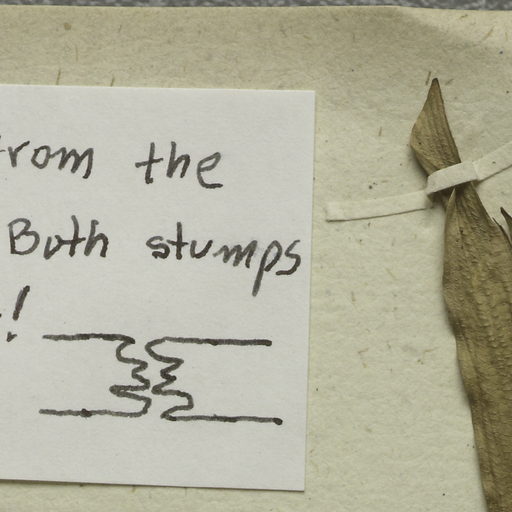 from the
Both stumps
!